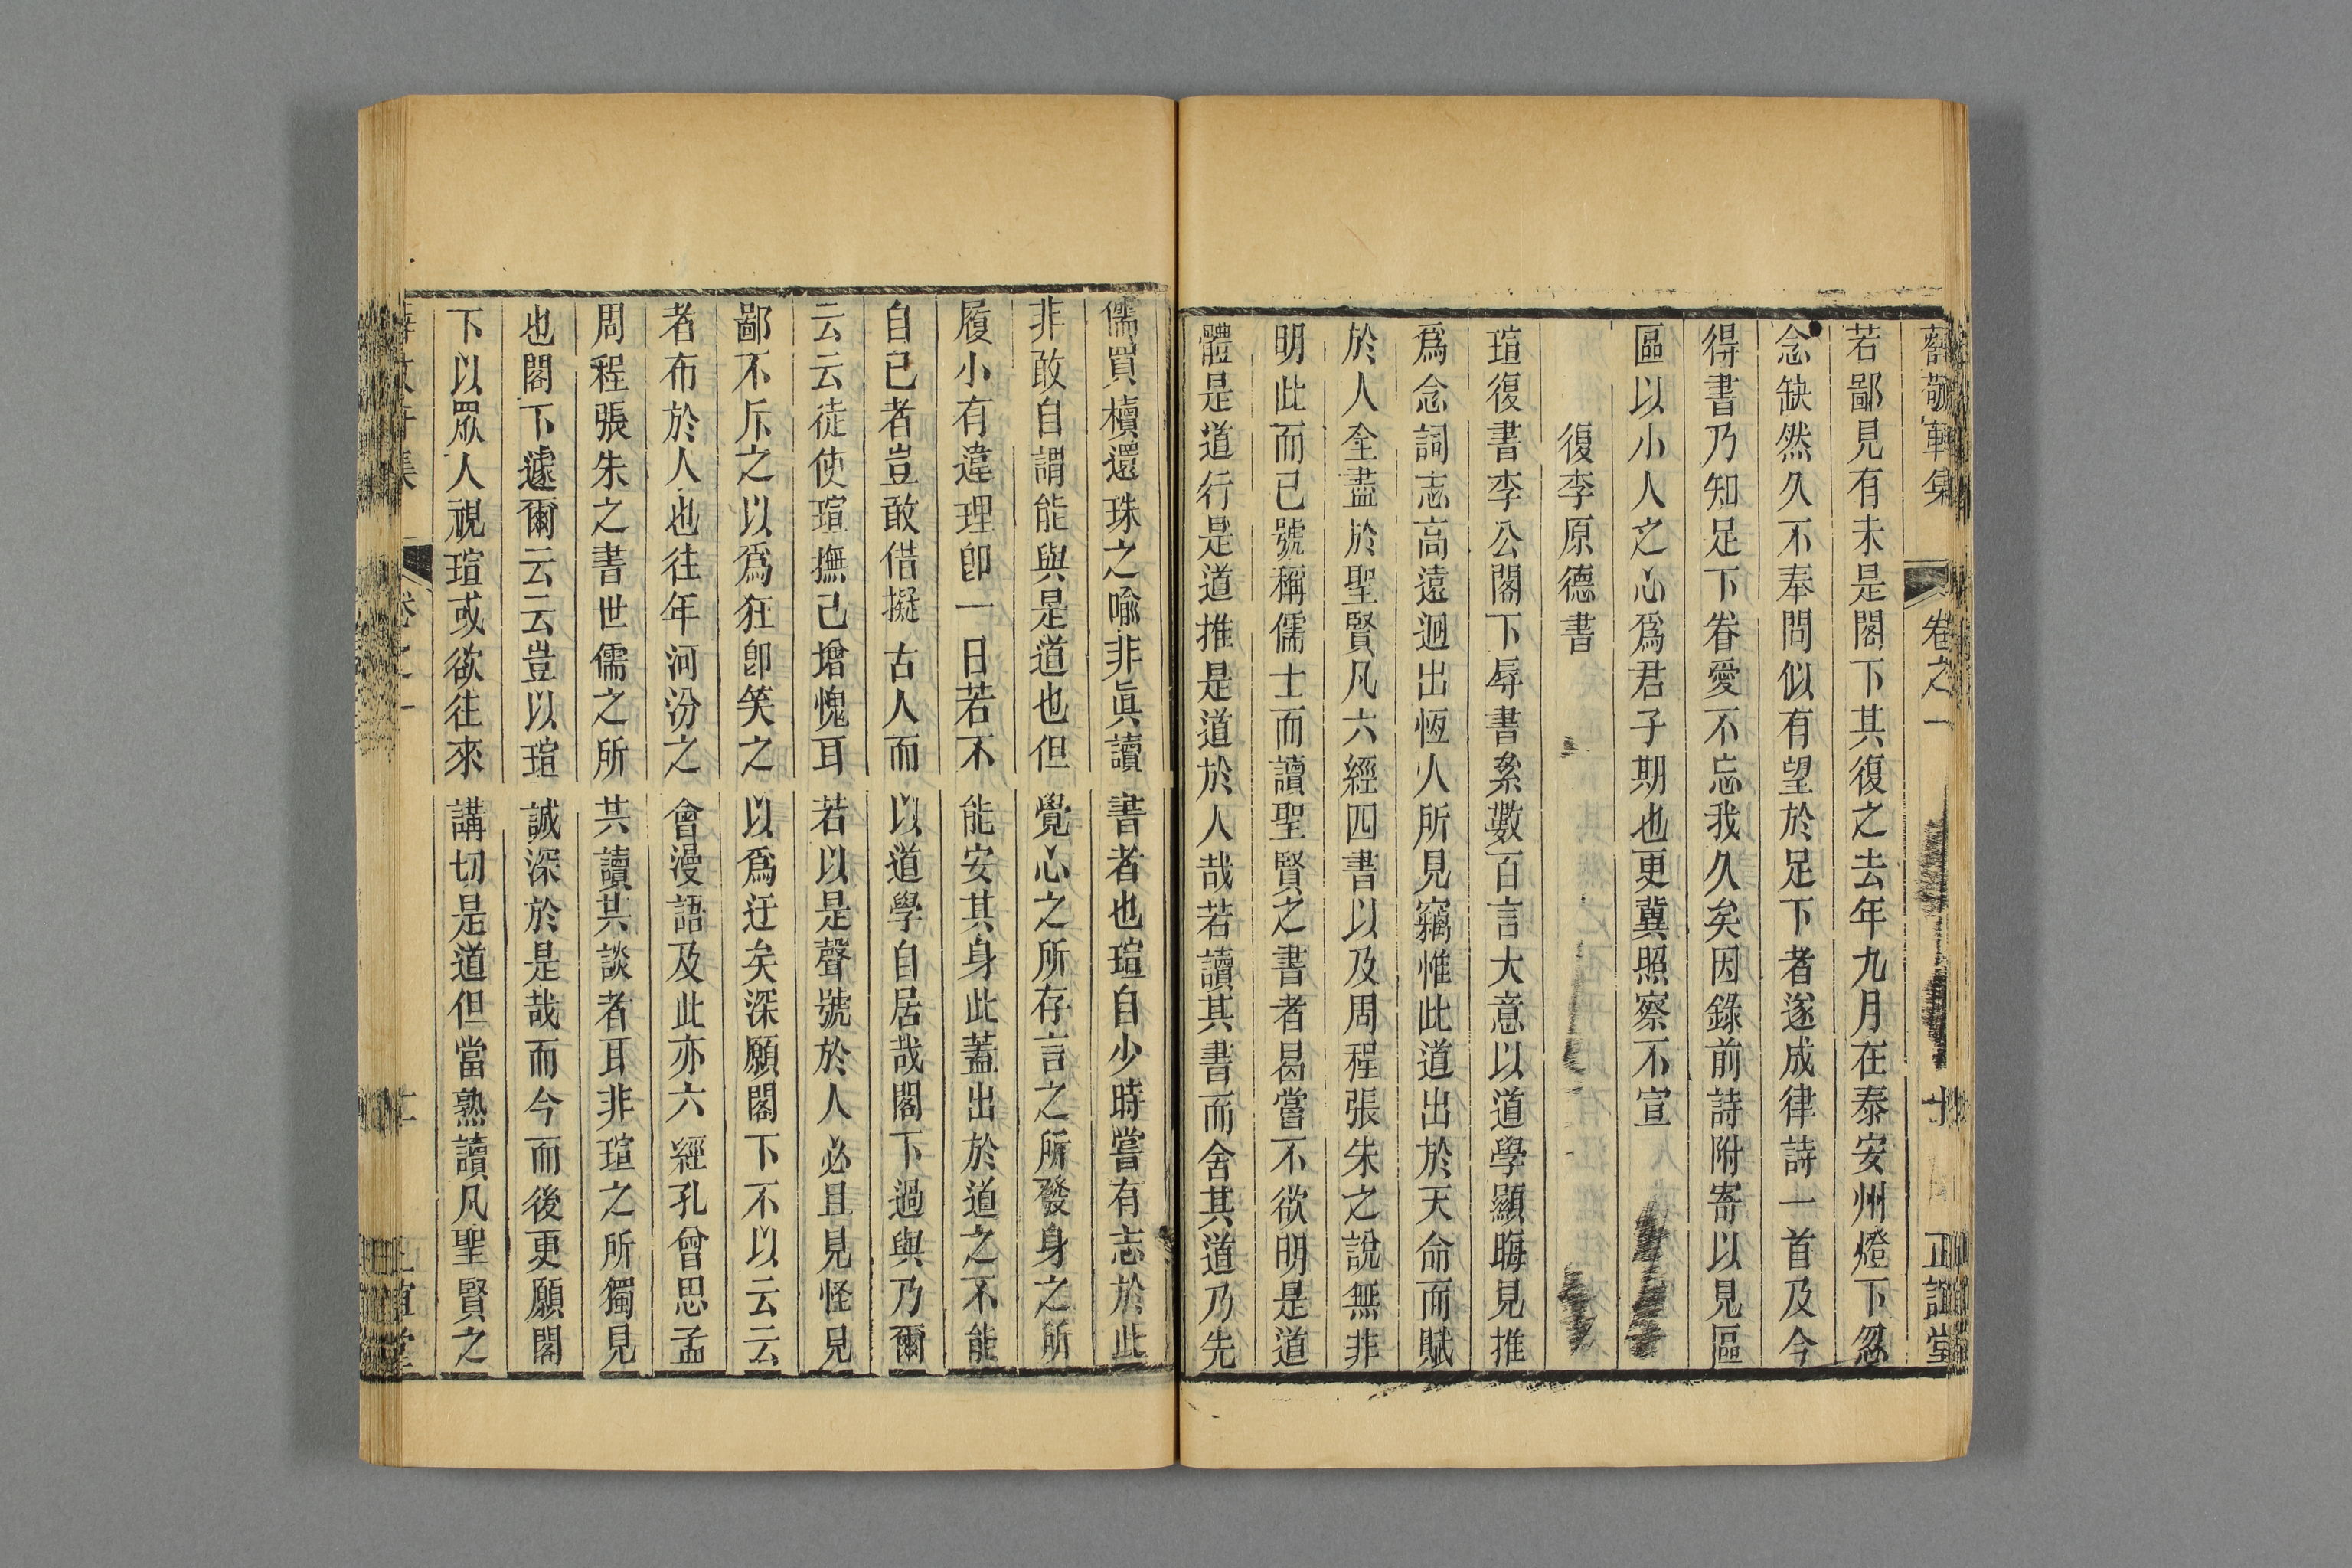 薛敬軒集 卷之一 十 正誼堂
若鄙見有未是閣下其復之去年九月在泰安州燈下忽
念缺然久不奉問似有望於足下者遂成律詩一首及今
得書乃知足下眷愛不忘我久矣因錄前詩附寄以見區
區以小人之心爲君子期也更冀照察不宣
復李原德書
瑄復書李公閣下辱書絫數百言大意以道學顯晦見推
爲念詞志高遠迥出恆人所見竊惟此道出於天命而賦
於人全盡於聖賢凡六經四書以及周程張朱之說無非
明此而已號稱儒士而讀聖賢之書者曷嘗不欲明是道
體是道行是道推是道於人哉若讀其書而舍其道乃先
儒買櫝還珠之喻非眞讀書者也瑄自少時嘗有志於此
非敢自謂能與是道也但覺心之所存言之所發身之所
履小有違理卽一日若不能安其身此蓋出於道之不能
自已者豈敢偕擬古人而以道學自居哉閣下過與乃爾
云云徒使瑄撫己增愧耳若以是聲號於人必且見怪見
鄙不斥之以爲狂卽笑之以爲迂矣深願閣下不以云云
者布於人也往年河汾之會漫語及此亦六經孔曾思孟
周程張朱之書世儒之所共讀共談者耳非瑄之所獨見
也閣下遽爾云云豈以瑄誠深於是哉而今而後更願閣
下以眾人視瑄或欲往來講切是道但當熟讀凡聖賢之